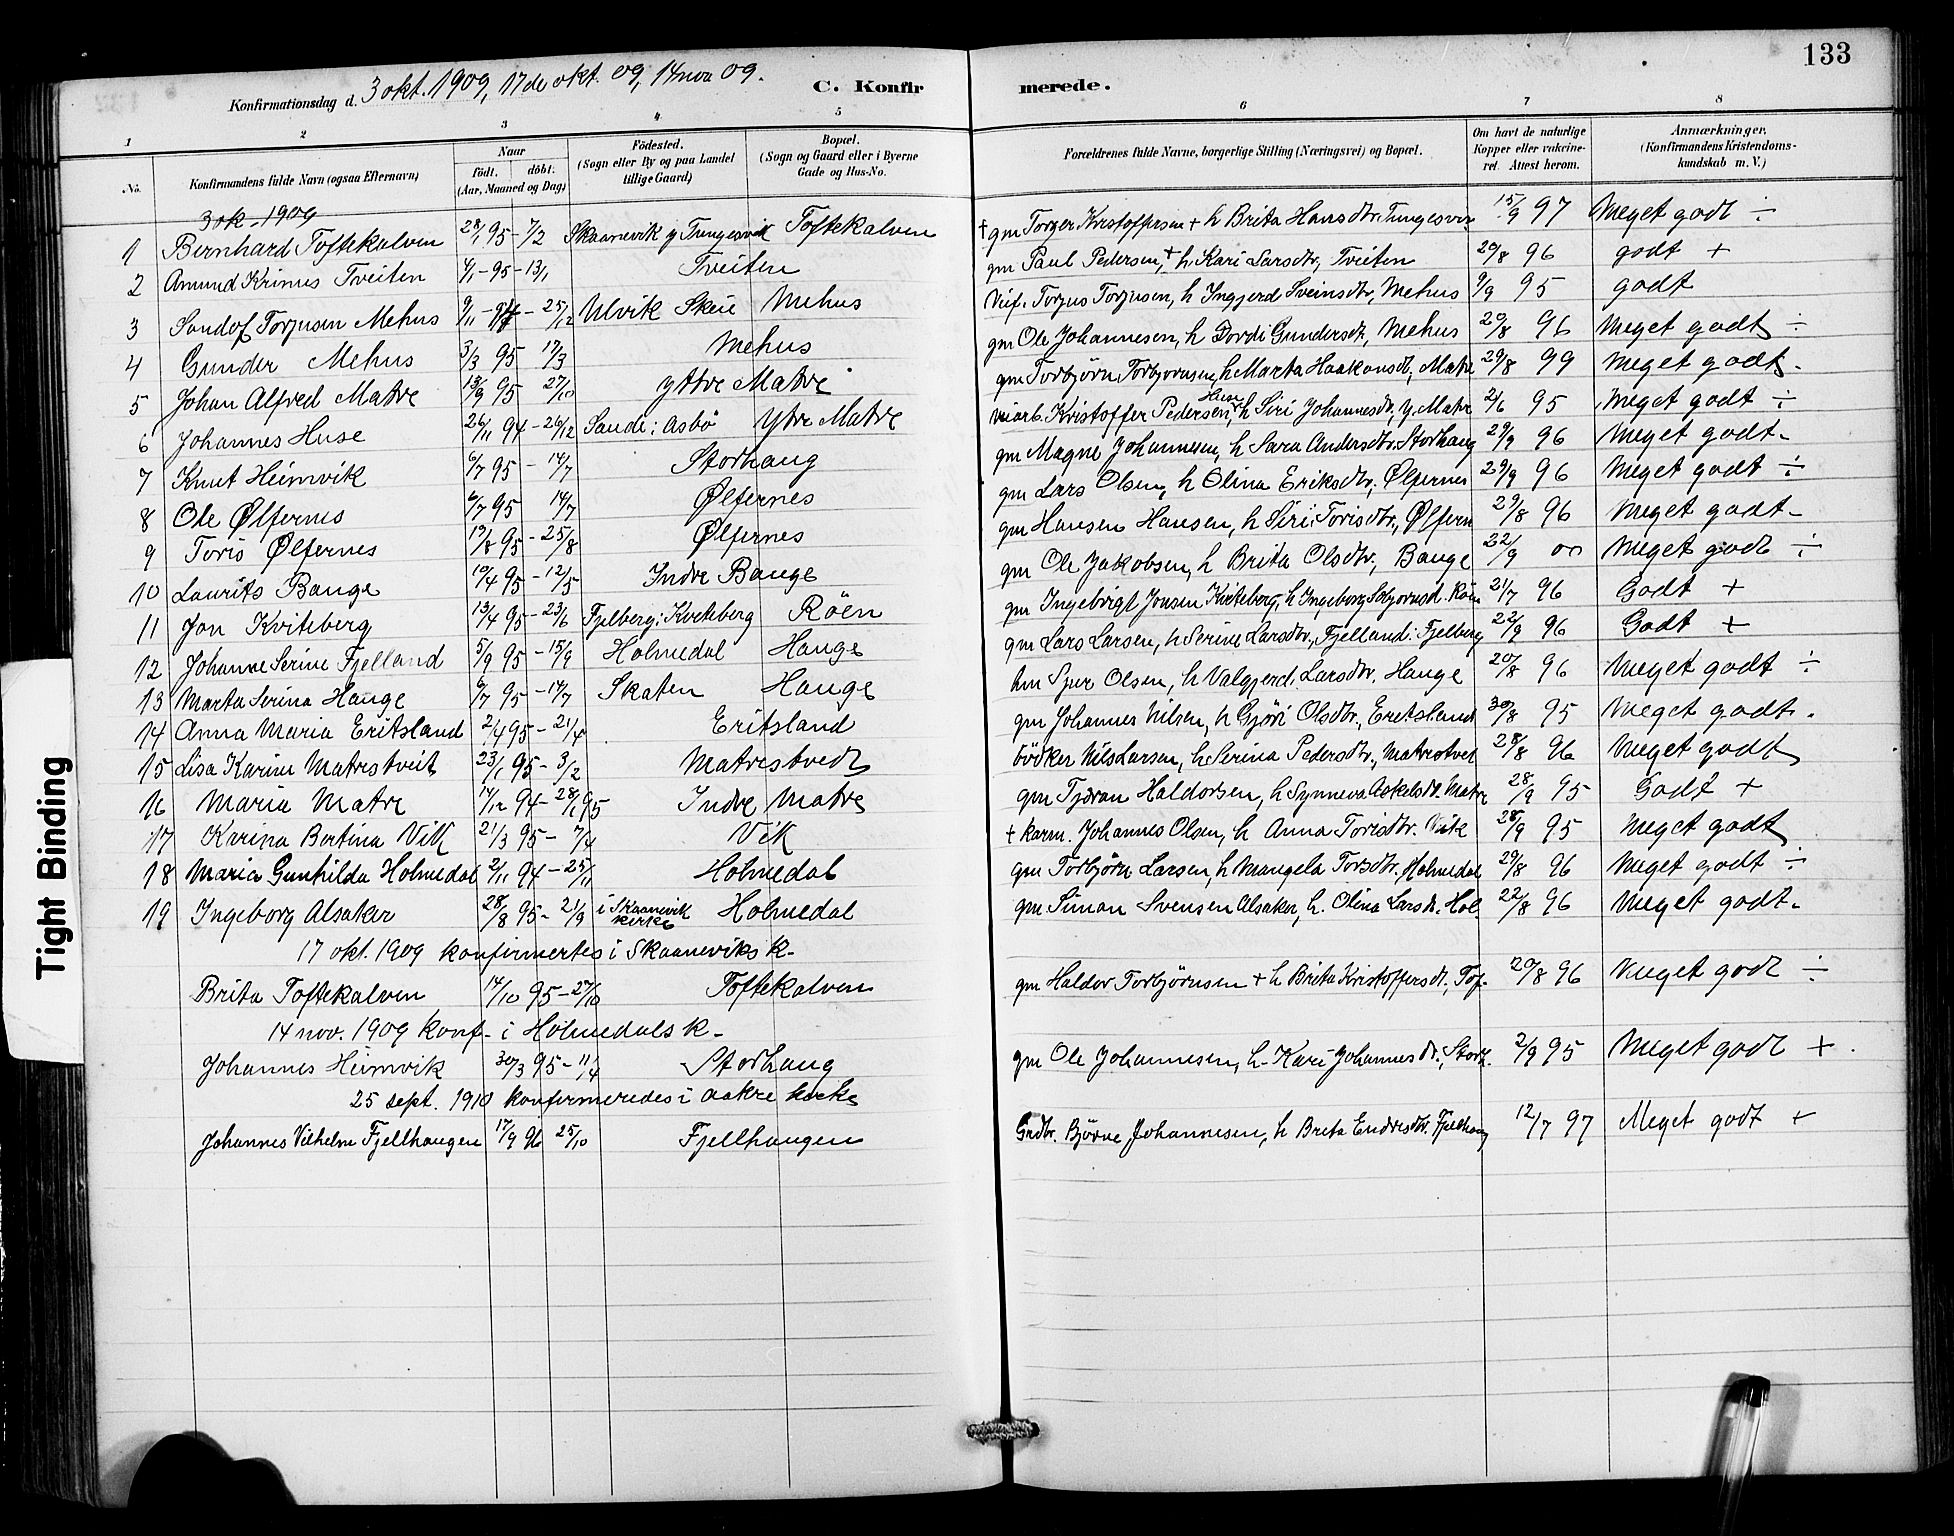 133
Konfirmationsdag d. 3 okt. 1909, 17de okt. 09, 14 nov 09.
C. Konfirmerede.
1 2 3 4 5 6 7 8
No. Konfirmandens fulde Navn (ogsaa Efternavn) Naar födt. döbt. (Aar, Maaned og Dag) Födested. (Sogn eller By og paa Landet tillige Gaard) Bopæl. (Sogn og Gaard eller i Byerne Gade og Hus-No. Forældrenes fulde Navne, borgerlige Stilling (Næringsvei) og Bopæl. Om havt de naturlige Kopper eller vaccineret. Attest herom. Anmærkninger. (Konfirmandens Kristendomskundskab m. V.)
3 ok. 1909
1 Bernhard Toftekalven 28/1 95 - 7/2 Skaanevik y Tungesvik Toftekalven † gm Torger Kristoffersen + h Brita Hansdtr. Tungesvik 15/9 97 Meget godt ÷
2 Amund Krimus Tveiten 4/1 - 95 - 13/1 Tveiten gm Paul Pedersen, + h Kari Larsdtr, Tveiten 20/8 96 godt +
3 Sondof Torjusen Mehus 9/11 - 94 - 25/12 Ulvik Skeie Mehus Torjus Torjusen, h Ingjerd Sveinsdtr, Mehus 9/9 95 godt
4 Gunder Mehus 3/3 95 17/3 Mehus gm Ole Johannesen, h Gundersdt, Mehus 20/8 96 Meget godt ÷
5 Johan Alfred Matre 13/9 95 27/10 yttre Matre gm Torbjörn Torbjornsen, h Marta Haakonsdt, Matre 29/8 99 Meget godt.
6 Johannes Huse 26/11 94 - 26/12 Sande: Asbö Ytre Matre Kristoffer Pedersen Huse, h Siri Johannesdtr, y. Matre 2/6 95 Meget godt ÷
7 Knut Heimvik 6/7 95 - 14/7 Storhaug gm Magne Johannesen, h Sara Andersdtr. Storhaug 29/9 96 Meget godt-
8 Ole Ølfernes 6/7 95 14/7 Ølfernes gm Lars Olsen, h Olina Eriksdtr, Ølfernes 29/9 96 Meget godt ÷
9 Toris Ølfernes 13/8 95 - 25/8 Ølfernes gm Hansen Hansen, h Siri Torisdtr., Ølfern 29/8 96 Meget godt-
10 Laurits Bauge 10/4 95 - 12/5 Indre Bauge gm Ole Jakobsen, h Brita Olsdtr, Bauge 22/9 00 Meget godt ÷
11 Jon Kviteberg 13/4 95 - 23/6 Fjelberg: Kviteberg Röen gm Ingebrigt Jonsen Kviteberg, h Ingeborg 21/7 96 Godt +
12 Johanne Serine Fjelland 5/9 95 - 15/9 Holmedal Hauge gm Lars Larsen, h Serine Larsdtr, Fjelland: Fjelberg 22/9 96 Godt +
13 Marta Serina Hauge 6/7 95 - 14/7 Skaten Hauge hm Sjur Olsen, h Valgjerd Larsdtr. Hauge 20/8 96 Meget godt ÷
14 Anna Maria Eritsland 2/4 95 - 21/4 Eritsland gm Johannes Nilsen, h Gjöri Olsdtr., Eretsland 30/8 95 Meget godt.
15 Lisa Karine Matrestveit 23/1 95 - 3/2 Matrestvedt bödker Nils Larsen, h Serina Pedersdtr., Matrestvet 28/8 96 Meget godt
16 Maria Matre 14/12 94 - 28/1 95 Indre Matre gm Tjeran Haldorsen, h Synneva Askelsdt. Matre 28/9 95 Godt +
17 Karina Bertina Vik 21/3 95 - 7/4 Vik + karm. Johannes Olsen, h Anna Torisdtr. Vik 28/9 95 Meget godt
18 Maria Gunhilda Holmedal 2/11 94 - 25/11 Holmedal gm Torbjörn Larsen, h Mangela Torsdtr. Holmedal 29/8 96 Meget godt ÷
19 Ingeborg Alsaker 28/8 95 - 21/9 i Skaanevik kirke Holmedal gm Simon Svensen Alsaker, h. Olina Larsdt. Hol 22/8 96 Meget godt.
17 okt. 1909 konfirmertes i Skaaneviks k-
Brita Toftekalven 14/10 95 - 27/10 Toftekalven gm Haldor Torbjörnsen + h Brita Kristoffersdt., Tof- 20/8 96 Meget godt ÷
14 nov. 1909 konf- i Holmedals k-
Johannes Heimvik 30/3 95 - 11/4 Storhaug gm Ole Johannesen, h- Kari Johannesdt., Storh. 2/9 95 Meget godt +
25 sept. 1910 konfirmeredes i Aakre kirke
Johannes Vilhelm Fjellhaugen 17/9 96 25/10 Fjellhaugen Grdbr. Björne Johannesen, h Breta Endresdtr. Fjellhaug 12/7 97 Meget godt +
Tight Binding